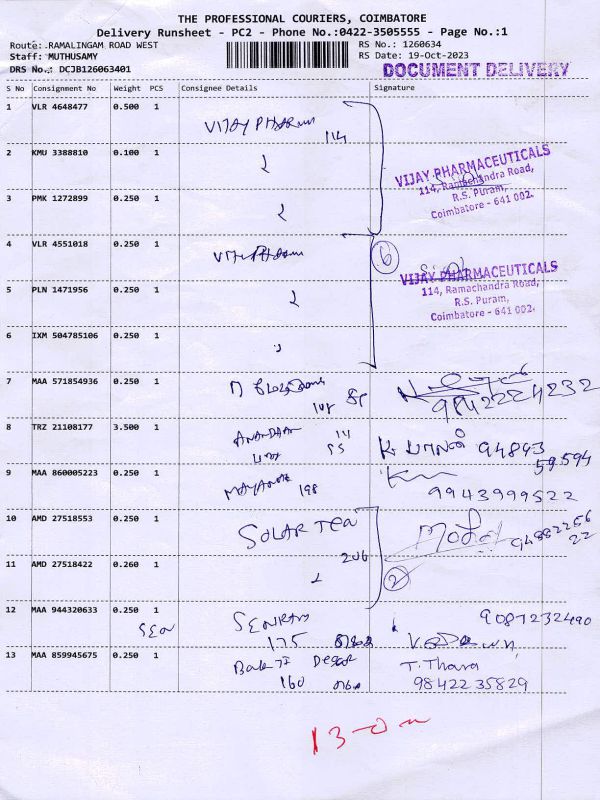 THE PROFESSIONAL COURIERS, COIMBATORE
Delivery Runsheet - PC2 - Phone No.:0422-3505555 - Page No.:1
Route:.RAMALINGAM ROAD WEST
RS No.: 1260634
Staff: MUTHUSAMY
RS Date: 19-Oct-2023
DRS No.: DCJB126063401
DOCUMENT DELIVERY
S No Consignment No Weight PCS Consignee Details Signature
1 VLR 4648477 0.500 1
VIJAY PHARMA
114
2 KMU 3388810 0.100 1
VIJAY PHARMACEUTICALS
114, Ramachandra Road,
R.S. Puram,
Coimbatore - 641 002.
3 PMK 1272899 0.250 1
4 VLR 4551018 0.250 1
6
VIJAY PHARMACEUTICALS
114, Ramachandra Road,
R.S. Puram,
Coimbatore - 641 002.
5 PLN 1471956 0.250 1
6 IXM 504785106 0.250 1
7 MAA 571854936 0.250 1
9842224232
8 TRZ 21108177 3.500 1
94893
59594
9 MAA 860005223 0.250 1
198
9943999522
10 AMD 27518553 0.250 1
SOLAR TEA
206
11 AMD 27518422 0.260 1
2
12 MAA 944320633 0.250 1
SEN
175
9087232490
13 MAA 859945675 0.250 1
160
T. Thara
98422 35829
13-0